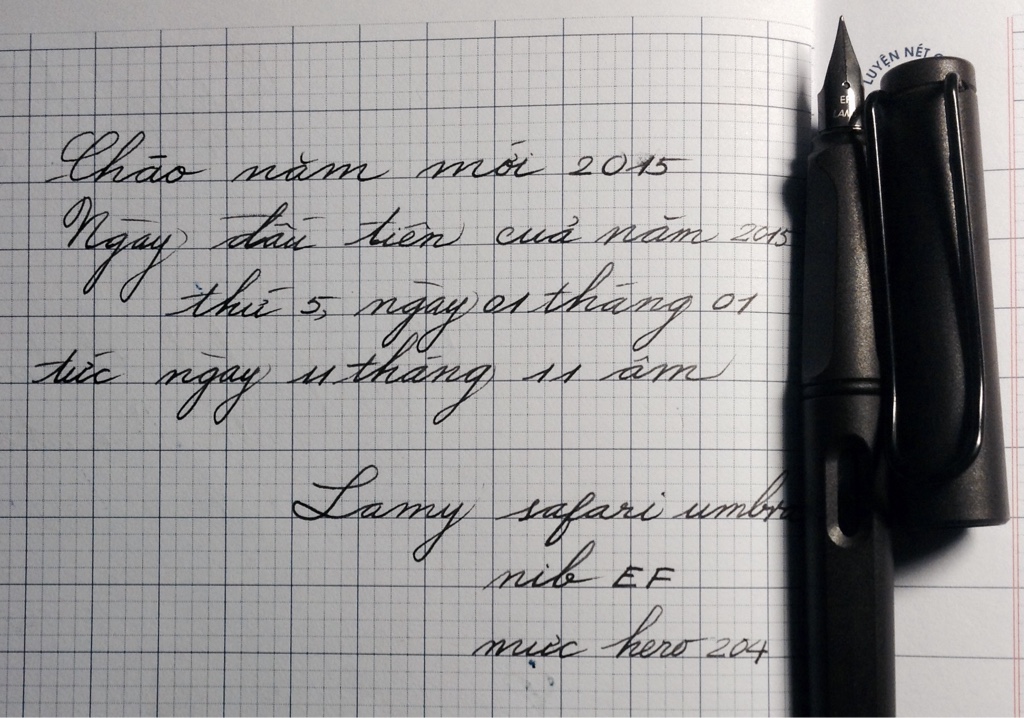 Chào năm mới 2015
Ngày đầu tiên của năm 2015
thứ 5, ngày 01 tháng 01
tức ngày 11 tháng 11 âm
Lamy safari umbra
nib EF
mực hero 204
LUYỆN NÉT
EF
LAMY